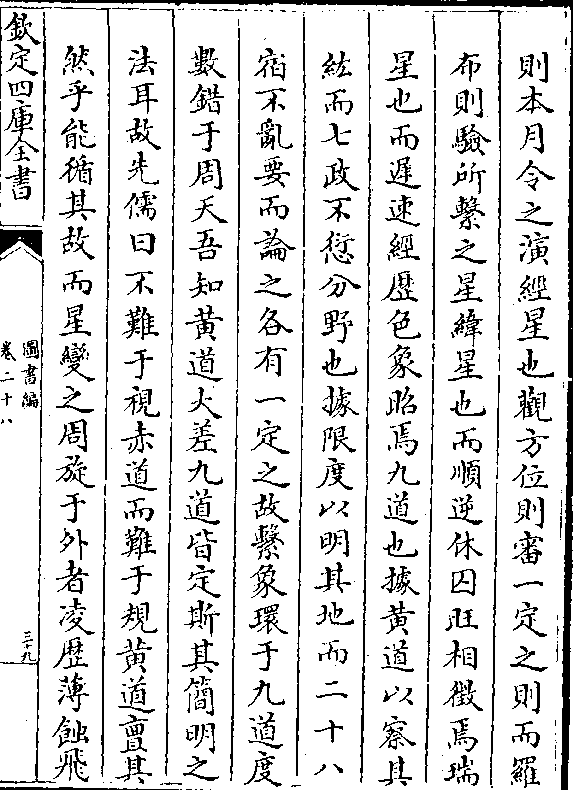 則本月令之演經星也觀方位則審一定之則而羅
布則驗所繫之星緯星也而順逆休囚旺相徵焉瑞
星也而遲速經歷色象昭焉九道也據黄道以察其
紘而七政不愆分野也據限度以明其地而二十八
宿不亂要而論之各有一定之故繫象環于九道度
數錯于周天吾知黄道火差九道皆定斯其簡明之
法耳故先儒曰不難于視赤道而難于規黄道亶其
然乎能循其故而星變之周旋于外者凌歴薄蝕飛
欽定四庫全書
圖書編
卷二十八
三十九